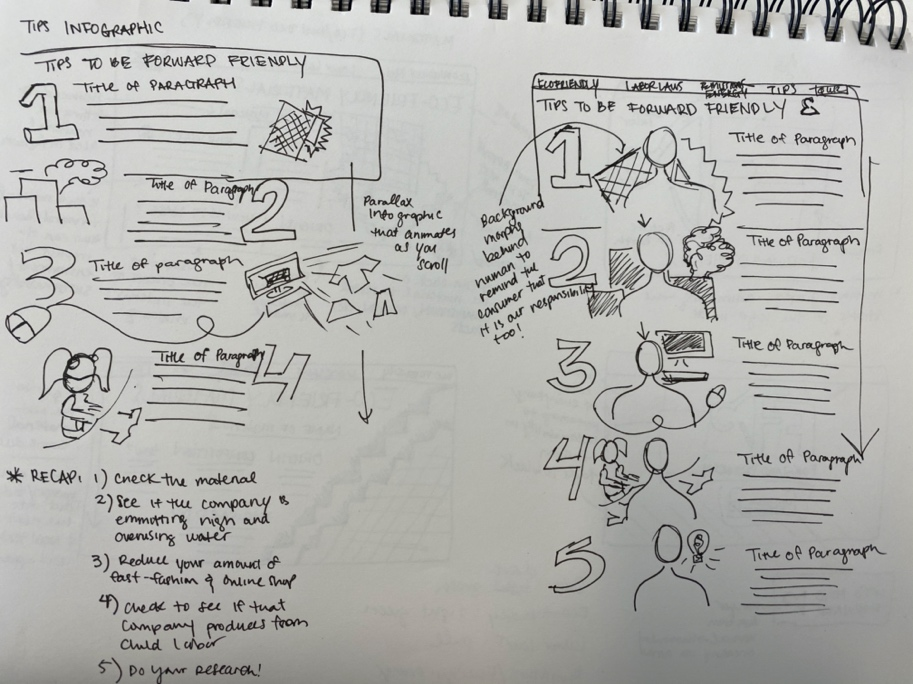 TIPS INFOGRAPHIC
TIPS TO BE FORWARD FRIENDLY
1
Title of PARAGRAPH
Title of Paragraph
2
3
Title of paragraph
Title of Paragraph
4
Parallax
Infographic
that animates
as you
scroll
* RECAP: 1) Check the material
2) See if the company is
emmitting high and
overusing water
3) Reduce your amount of
fast-fashion & online shop
4) Check to see if that
company produces from
child labor
5) Do your research!
ECOFRIENDLY LABOR LAWS EMISSIONS ENERGY TIPS
TIPS TO BE FORWARD FRIENDLY &
1
Title of Paragraph
Background
morphs
behind
human to
remind the
consumer that
it is our responsibility
too!
2
Title of Paragraph
3
Title of Paragraph
4
Title of Paragraph
5
Title of Paragraph